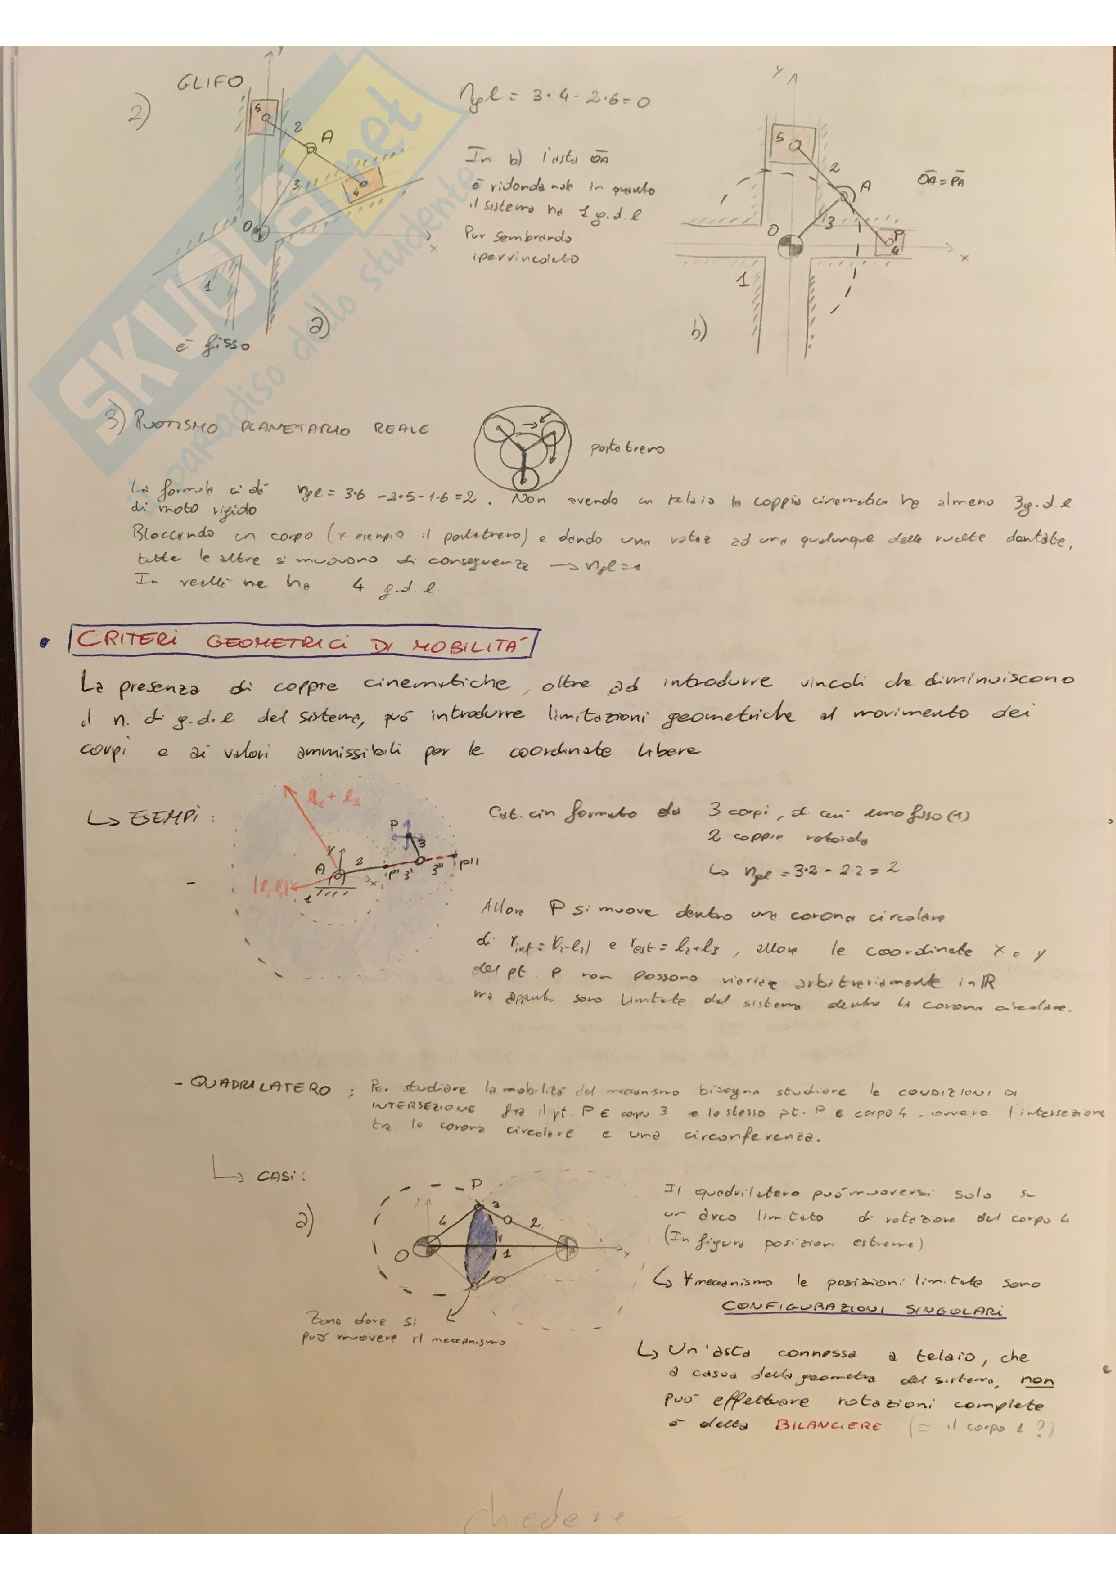 GLIFO
2)
5
2
A
3
4
O
1
x
a)
è fisso
ngl = 3·4 - 2·6 = 0
In b) l'asta OA
è ridondante in quanto
il sistema ha 1 g.d.l
Pur sembrando
ipervincolato
y
5
2
A
OA = PA
O
3
P
4
x
1
b)
SKUOLA.net
paradiso dello studente
3) ROTISMO PLANETARIO REALE
portatreno
La formula ci dà ngl = 3·6 - 2·5 - 1·6 = 2. Non avendo un telaio la coppia cinematica ha almeno 3 g.d.l
di moto rigido
Bloccando un corpo (x esempio il portatreno) e dando una rotaz ad una qualunque delle ruote dentate,
tutte le altre si muovono di conseguenza → ngl = 1
In realtà ne ha 4 g.d.l
• CRITERI GEOMETRICI DI MOBILITÀ
La presenza di coppie cinematiche, oltre ad introdurre vincoli che diminuiscono
il n. di g.d.l del sistema, può introdurre limitazioni geometriche al movimento dei
corpi e ai valori ammissibili per le coordinate libere
↳ ESEMPI:
P
3
y
A
2
x
P'
3'
3''
P''
1
Cat. cin formata da 3 corpi, di cui uno fisso (1)
2 coppie rotoidali
↳ ngl = 3·2 - 2·2 = 2
Allora P si muove dentro una corona circolare
di e , allora le coordinate x e y
del pt. P non possono variare arbitrariamente in ℝ
ma appunto sono limitate dal sistema dentro la corona circolare.
- QUADRILATERO: Per studiare la mobilità del meccanismo bisogna studiare le CONDIZIONI DI
INTERSEZIONE fra il pt. P ∈ corpo 3 e lo stesso pt. P ∈ corpo 4, ovvero l'intersezione
tra la corona circolare e una circonferenza.
↳ CASI:
a)
P
4
3
2
O
1
x
Zona dove si
può muovere il meccanismo
Il quadrilatero può muoversi solo su
un arco limitato di rotazione del corpo 4
(In figura posizioni estreme)
↳ ∀ meccanismo le posizioni limitate sono
CONFIGURAZIONI SINGOLARI
↳ Un'asta connessa a telaio, che
a causa della geometria del sistema, non
può effettuare rotazioni complete
è detta BILANCIERE (= il corpo 2 ?)
chedere